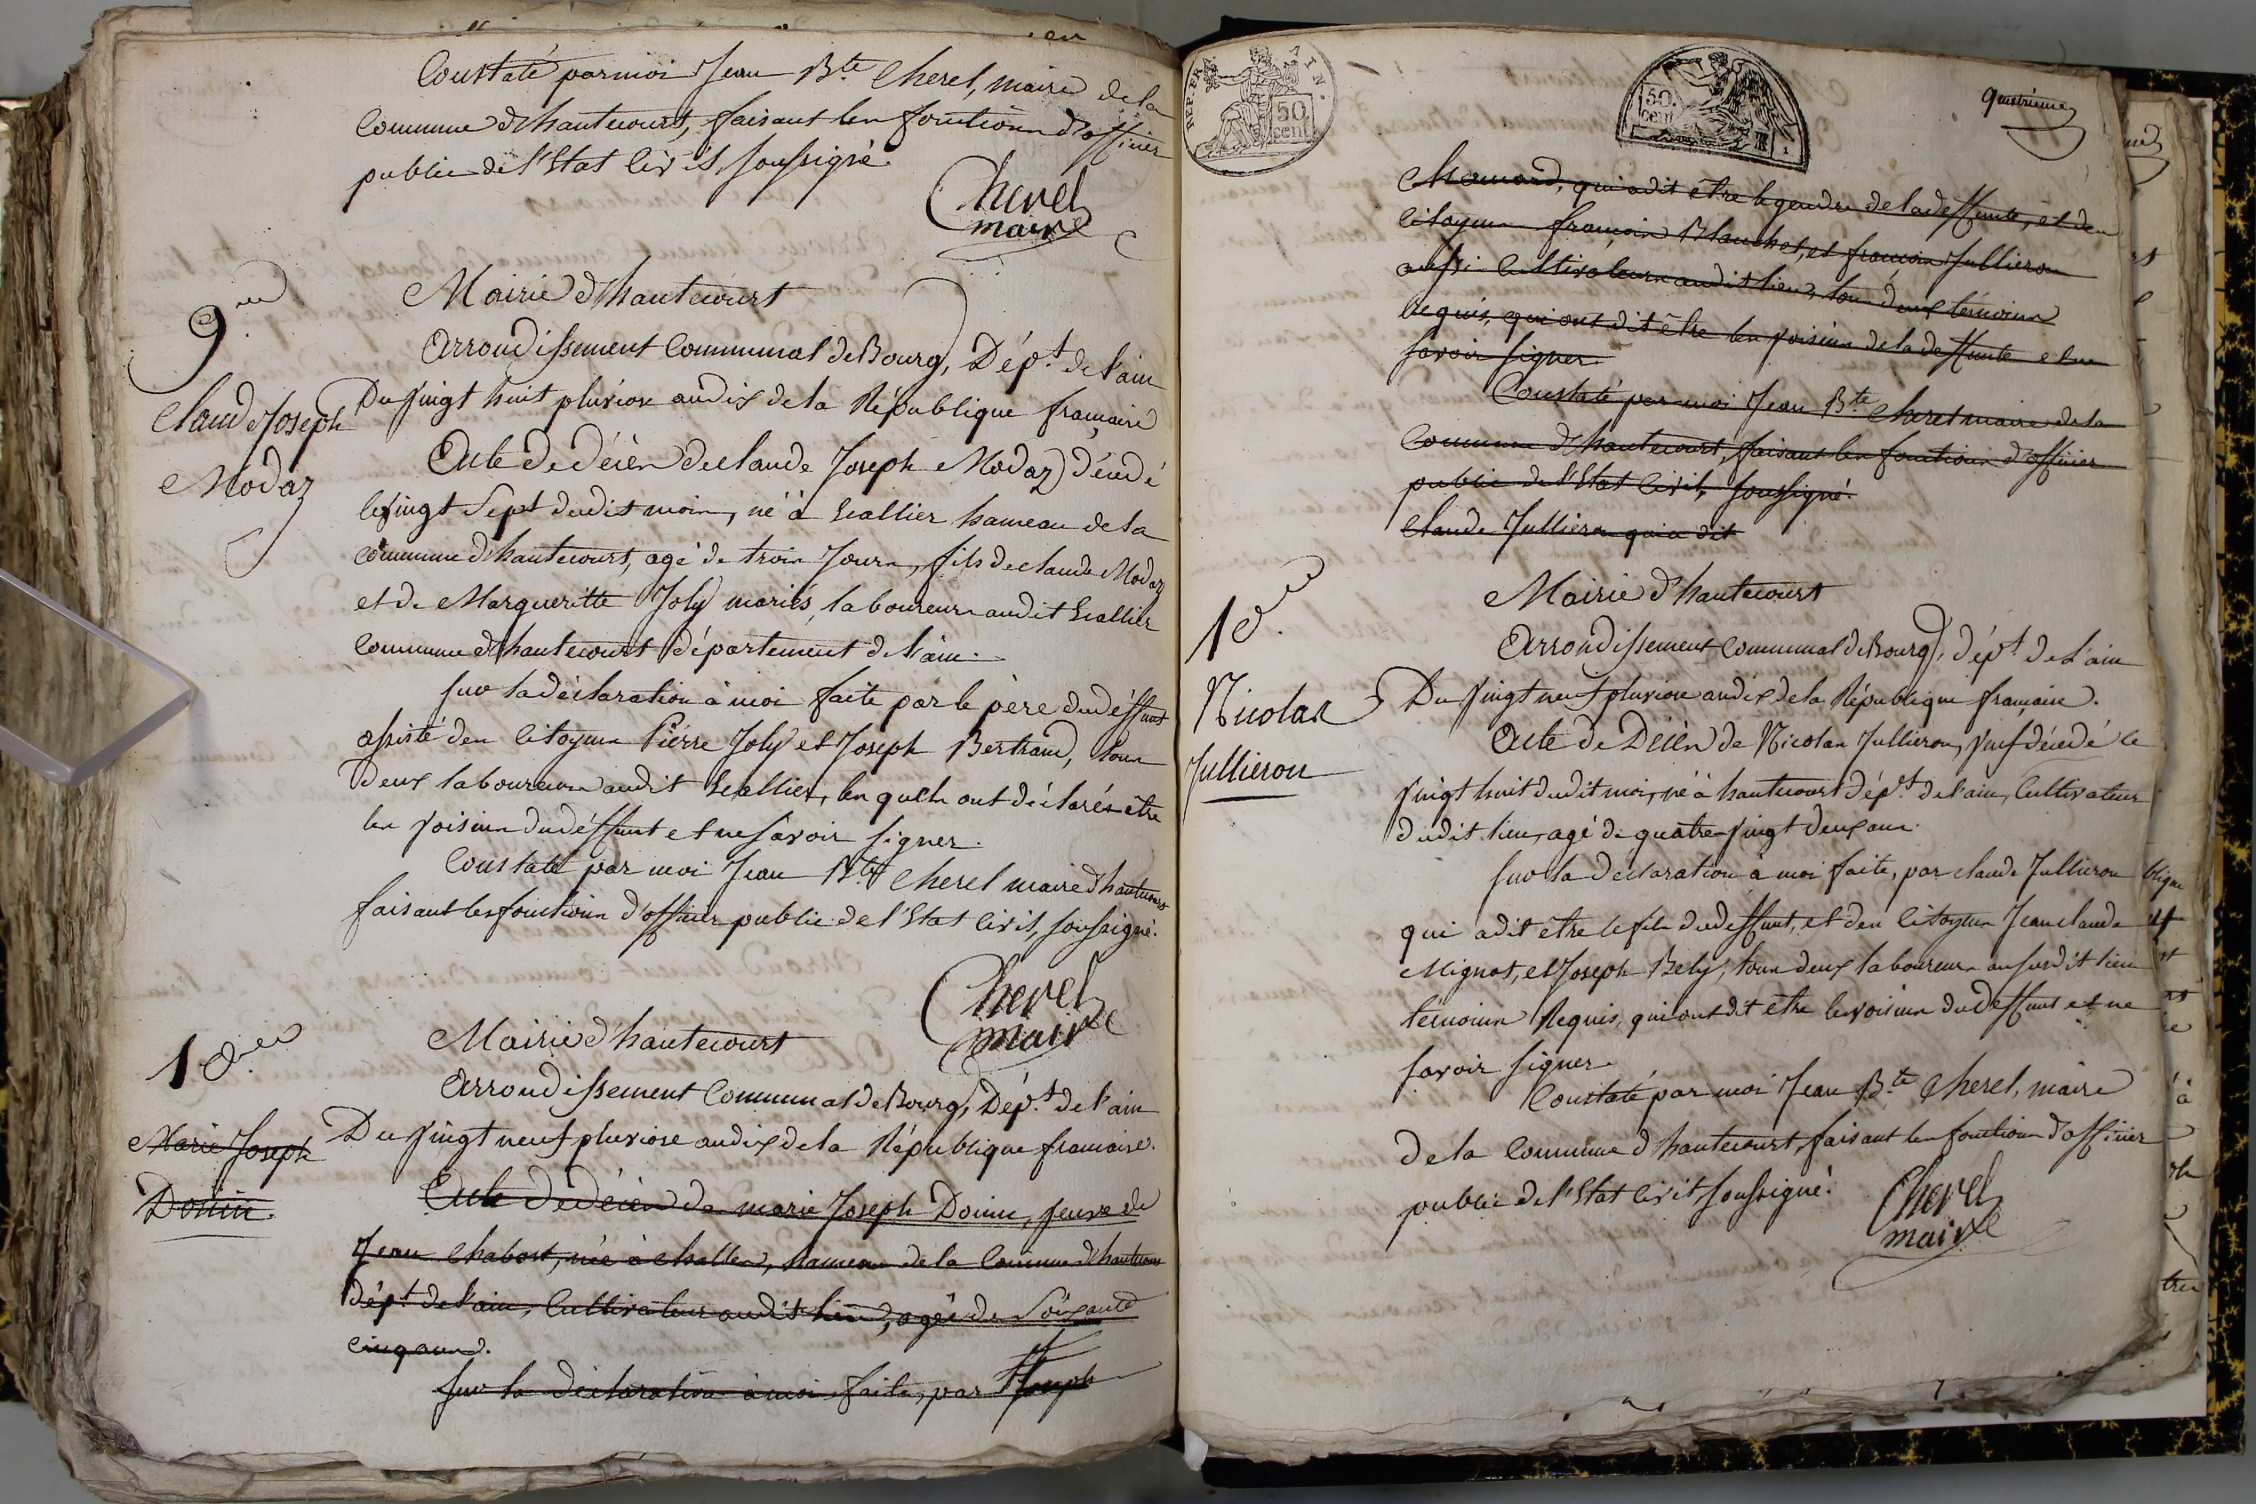 Constaté par moi Jean Bte Cherel, maire de la
Commune d'hautecourt, faisant les fonctions d'officier
public de l'Etat Civil, soussigné.
Cherel
maire
9me
Claude Joseph
Modaz
Mairie d'hautecourt
Arrondissement Communal de Bourg, Dépt. de l'ain
Du vingt huit pluviose an dix de la République française
Acte de décès de Claude Joseph Modaz décédé
le vingt sept dudit mois, né à hallier hameau de la
commune d'hautecourt, agé de trois Jours, fils de claude Modaz
et de Margueritte Joly mariés, laboureurs audit hallier
commune d'hautecourt département de l'ain.
Sur la déclaration à moi faite par le père du déffunt
assisté des citoyens Pierre Joly et Joseph Bertrand, tous
deux laboureurs audit hallier, les quels ont déclarés être
les voisins du déffunt et ne savoir signer.
Constaté par moi Jean Bte Cherel maire d'hautecourt
faisant les fonctions d'officier public de l'Etat Civil, soussigné.
Cherel
maire
10me
Marie Joseph
Donin.
Mairie d'hautecourt
Arrondissement Communal de Bourg, Dépt. de l'ain
Du vingt neuf pluviose an dix de la République française.
Acte de décès de marie Joseph Donin, veuve de
Jean Chabost, née à challes, hameau de la Commune d'hautecourt
dépt de l'ain, Cultivateur audit lieu, agée de Soixante
cinq ans.
Sur la déclaration à moi faite, par Joseph
REP. FRA
AIN.
50
cent
50.
cent
quatrième
Monnard, qui a dit être le gendre de la deffunte, et des
Citoyens françois Blanchet, et françois Jullieron
aussi Cultivateurs audit lieu, tous deux témoins
requis, qui ont dit être les voisins de la deffunte et ne
savoir signer
Constaté par moi Jean Bte Cherel maire de la
Commune d'hautecourt, faisant les fonctions d'officier
public de l'Etat Civil, soussigné.
Claude Jullieron qui a dit
10me
Nicolas
Jullieron
Mairie d'hautecourt
Arrondissement Communal de Bourg, dépt de l'ain
Du vingt neuf pluviose an dix de la République française.
Acte de Décès de Nicolas Jullieron, veuf décédé le
vingt huit dudit mois, né à hautecourt dépt. de l'ain, Cultivateur
dudit lieu, agé de quatre vingt deux ans.
Sur la declaration à moi faite, par claude Jullieron
qui a dit être le fils du deffunt, et des Citoyens Jean claude
Mignot, et Joseph Bely, tous deux laboureurs au susdit lieu
témoins Requis, qui ont dit être les voisins du deffunt et ne
savoir signer
Constaté par moi Jean Bte Cherel, maire
de la Commune d'hautecourt, faisant les fonctions d'officier
public de l'Etat Civil, soussigné.
Cherel
maire